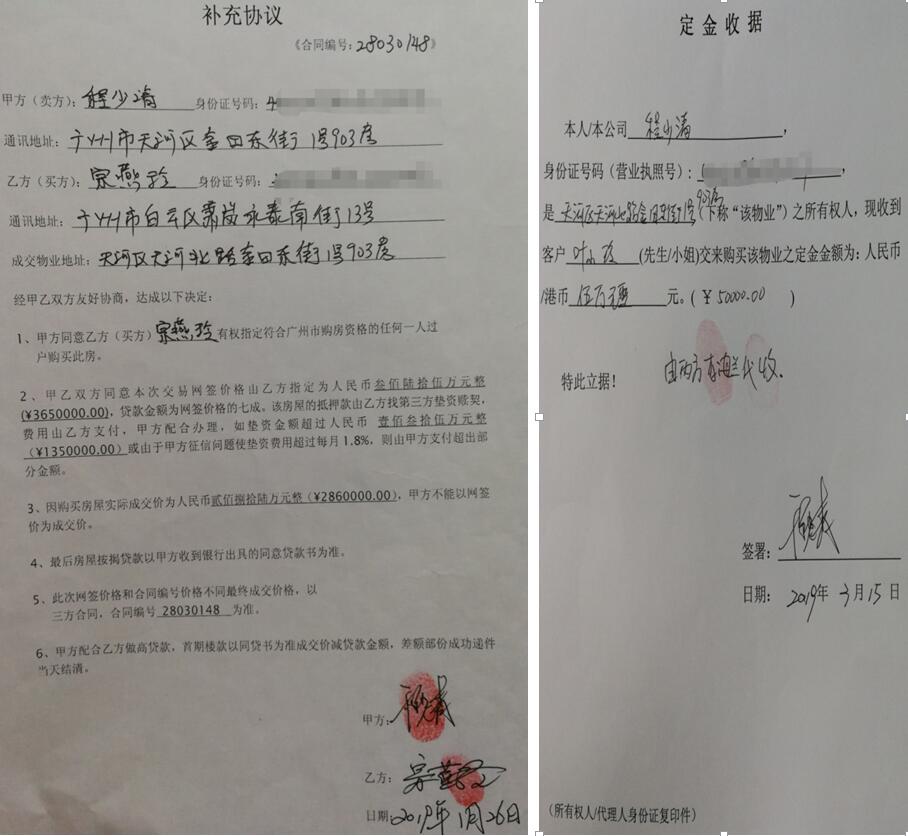 补充协议
《合同编号：28030148》
甲方（卖方）：程少清 身份证号码：4
通讯地址：广州市天河区金田东街1号903房
乙方（买方）：宗燕玲 身份证号码：
通讯地址：广州市白云区萧岗永泰南街13号
成交物业地址：天河区天河北路金田东街1号903房
经甲乙双方友好协商，达成以下决定：
1、甲方同意乙方（买方）宗燕玲有权指定符合广州市购房资格的任何一人过
户购买此房。
2、甲乙双方同意本次交易网签价格由乙方指定为人民币叁佰陆拾伍万元整
(¥3650000.00)，贷款金额为网签价格的七成。该房屋的抵押款由乙方找第三方垫资赎契，
费用由乙方支付，甲方配合办理，如垫资金额超过人民币 壹佰叁拾伍万元整
（¥1350000.00）或由于甲方征信问题使垫资费用超过每月1.8%，则由甲方支付超出部
分金额。
3、因购买房屋实际成交价为人民币贰佰捌拾陆万元整（¥2860000.00)，甲方不能以网签
价为成交价。
4、最后房屋按揭贷款以甲方收到银行出具的同意贷款书为准。
5、此次网签价格和合同编号价格不同最终成交价格，以
三方合同，合同编号 28030148 为准。
6、甲方配合乙方做高贷款，首期楼款以同贷书为准成交价减贷款金额，差额部份成功递件
当天结清。
甲方：
乙方：
日期：2019年1月26日
定金收据
本人/本公司 程少清，
身份证号码（营业执照号）：，
是 天河区天河北路金田东街1号903房（下称“该物业”）之所有权人，现收到
客户 叶小 (先生/小姐)交来购买该物业之定金金额为：人民币
/港币 伍万 元。(￥50000.00 )
特此立据！ 由丙方 代收.
签署：
日期： 2019年 3月15日
（所有权人/代理人身份证复印件）